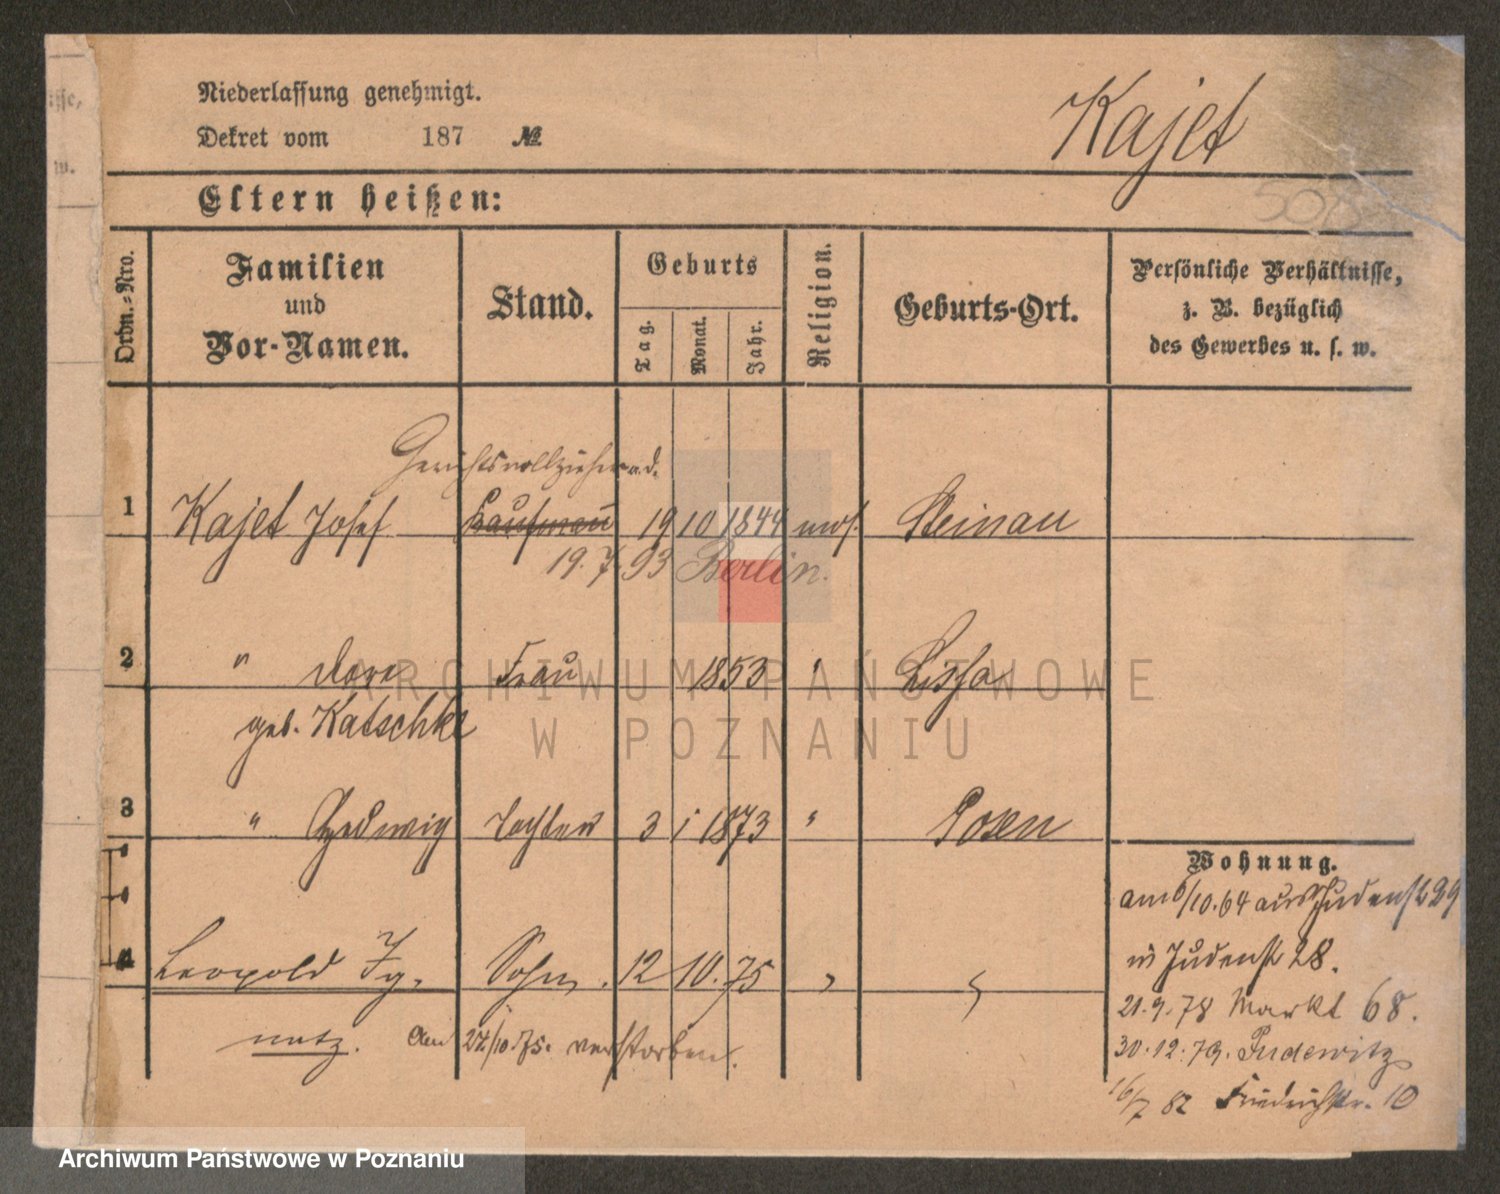 Niederlassung genehmigt.
Dekret vom 187 №
Kajet
508
Eltern heißen:
Ordn.-Nro.
Familien
und
Vor-Namen.
Stand.
Geburts
Tag.
Monat.
Jahr.
Religion.
Geburts-Ort.
Persönliche Verhältnisse,
z. B. bezüglich
des Gewerbes u. s. w.
Gerichtsvollzieher a.d.
1 Kajet Josef Kaufmann 19 10 1844 mos. Steinau
19. 7. 93 Berlin.
2 " Dora Frau 1853 " Lissa
geb. Katschke
3 " Hedwig Tochter 3 1 1873 " Posen
Wohnung.
am 6/10. 64 aus Judenst 29
in Judenst 28.
4 Leopold Ig. Sohn. 12 10. 75 " "
21. 9. 78 Markt 68.
am 27/10. 75. verstorben.
30. 12. 79. Pudewitz
16/7 82 Friedrichstr. 10
ARCHIWUM PAŃSTWOWE
W POZNANIU
Archiwum Państwowe w Poznaniu